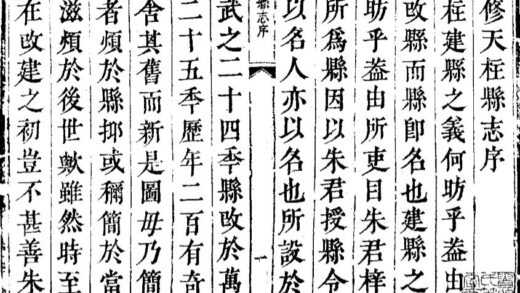 修天柱縣志序
柱建縣之義何昉乎葢由
改縣而縣卽名也建縣之
昉乎葢由所吏目朱君梓
所爲縣因以朱君授縣令
以名人亦以名也所設於
縣志序
一
武之二十四秊縣改於萬
二十五秊歷年二百有奇
舍其舊而新是圖毋乃簡
者煩於縣抑或穪簡於當
滋煩於後世歟雖然時至
在改建之初豈不甚善朱